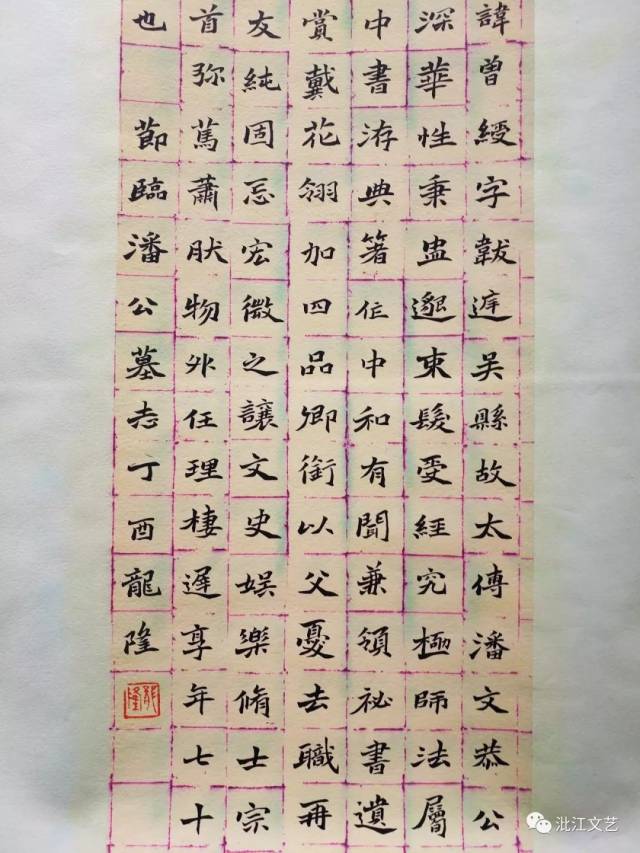 諱曾綬字韍庭吴縣故太傅潘文恭公
深華性秉盅邈束髮受經究極師法屬
中書洊典箸作中和有聞兼領祕書遺
賞戴花翎加四品卿銜以父憂去職再
友純固忌宏微之譲文史娱樂脩士宗
首弥篤蕭肰物外任理棲遲享年七十
也 節臨潘公墓志丁酉龍隆
沘江文艺